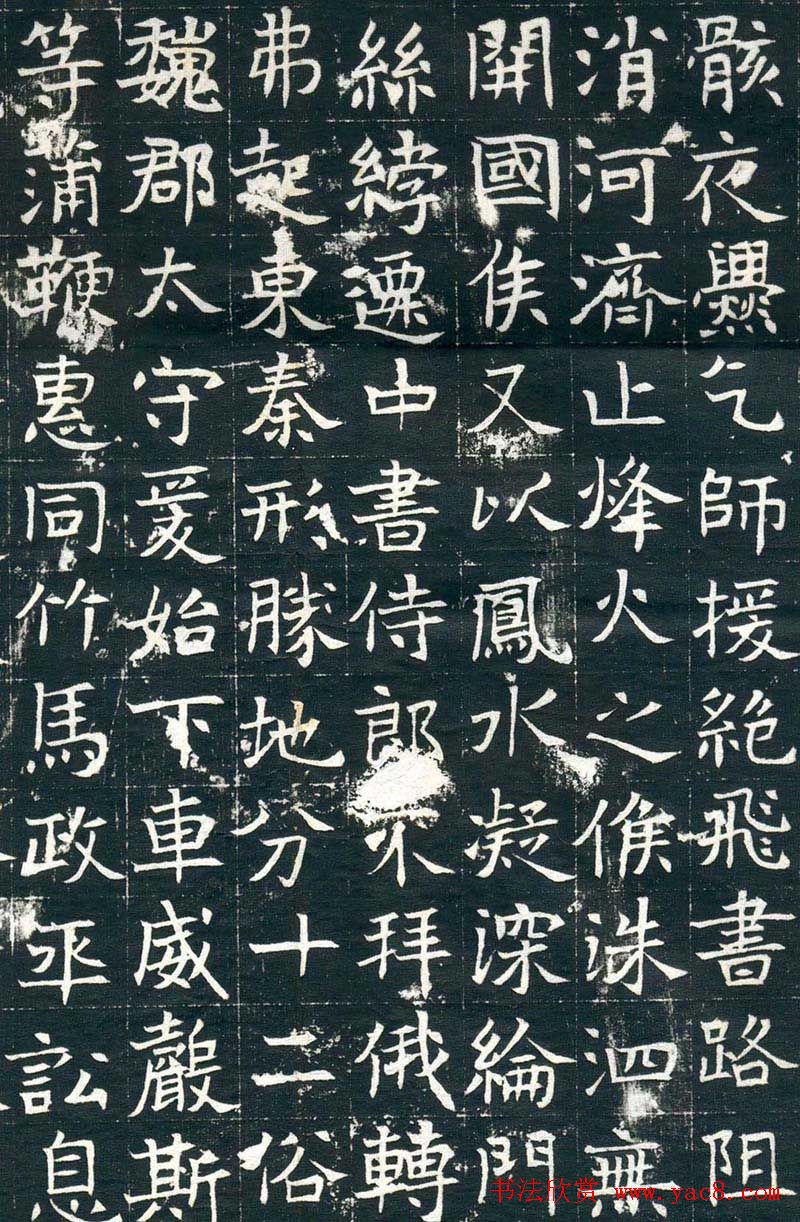 骸夜爨乞師援絶飛書路阻
消河濟止烽火之候洙泗無
開國侯又以鳳水凝深綸門
絲綍遷中書侍郎不拜俄轉
弗起東秦形勝地分十二俗
魏郡太守爰始下車威斯
等蒲鞭惠同竹馬政平訟息
书法欣赏 www.yac8.com